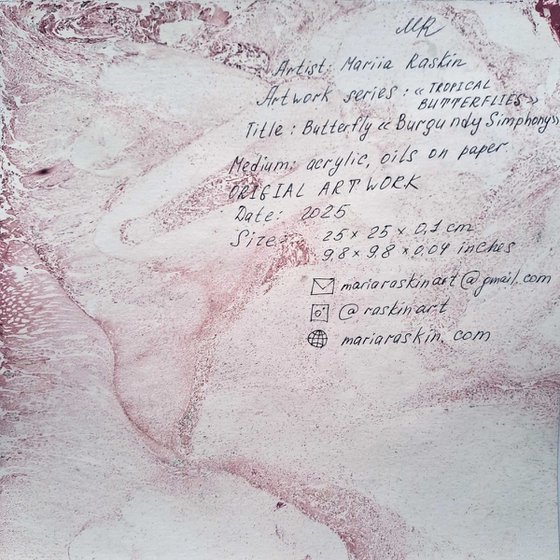 MR
Artist: Mariia Raskin
Artwork series: «TROPICAL
BUTTERFLIES»
Title: Butterfly «Burgundy Simphony»
Medium: acrylic, oils on paper
ORIGIAL ARTWORK
Date: 2025
Size: 25 x 25 x 0,1 cm
9,8 x 9,8 x 0,04 inches
mariaraskinart@gmail.com
@raskinart
mariaraskin.com